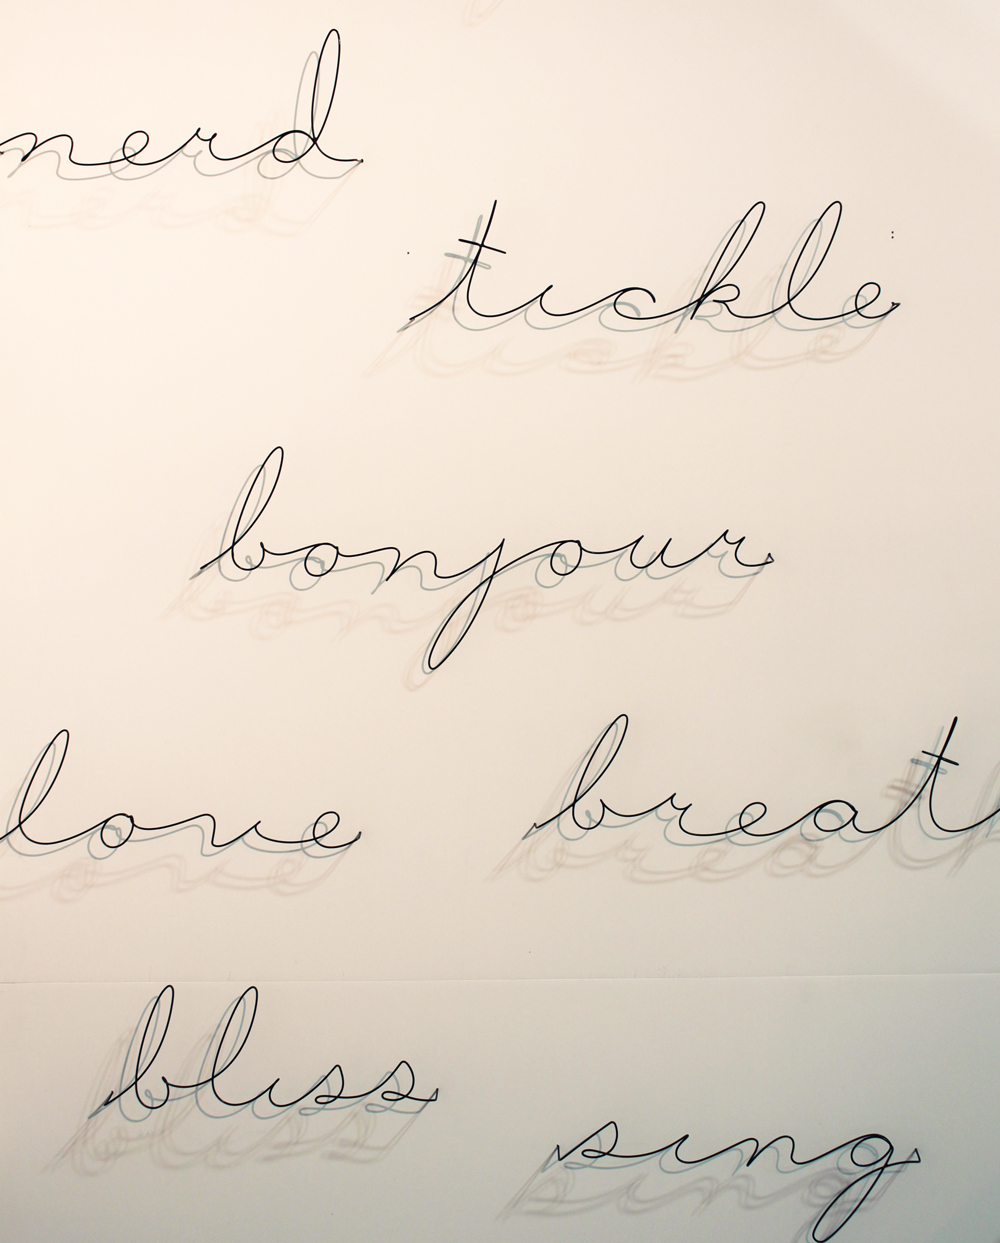 nerd
tickle
bonjour
love
breat
bliss
sing